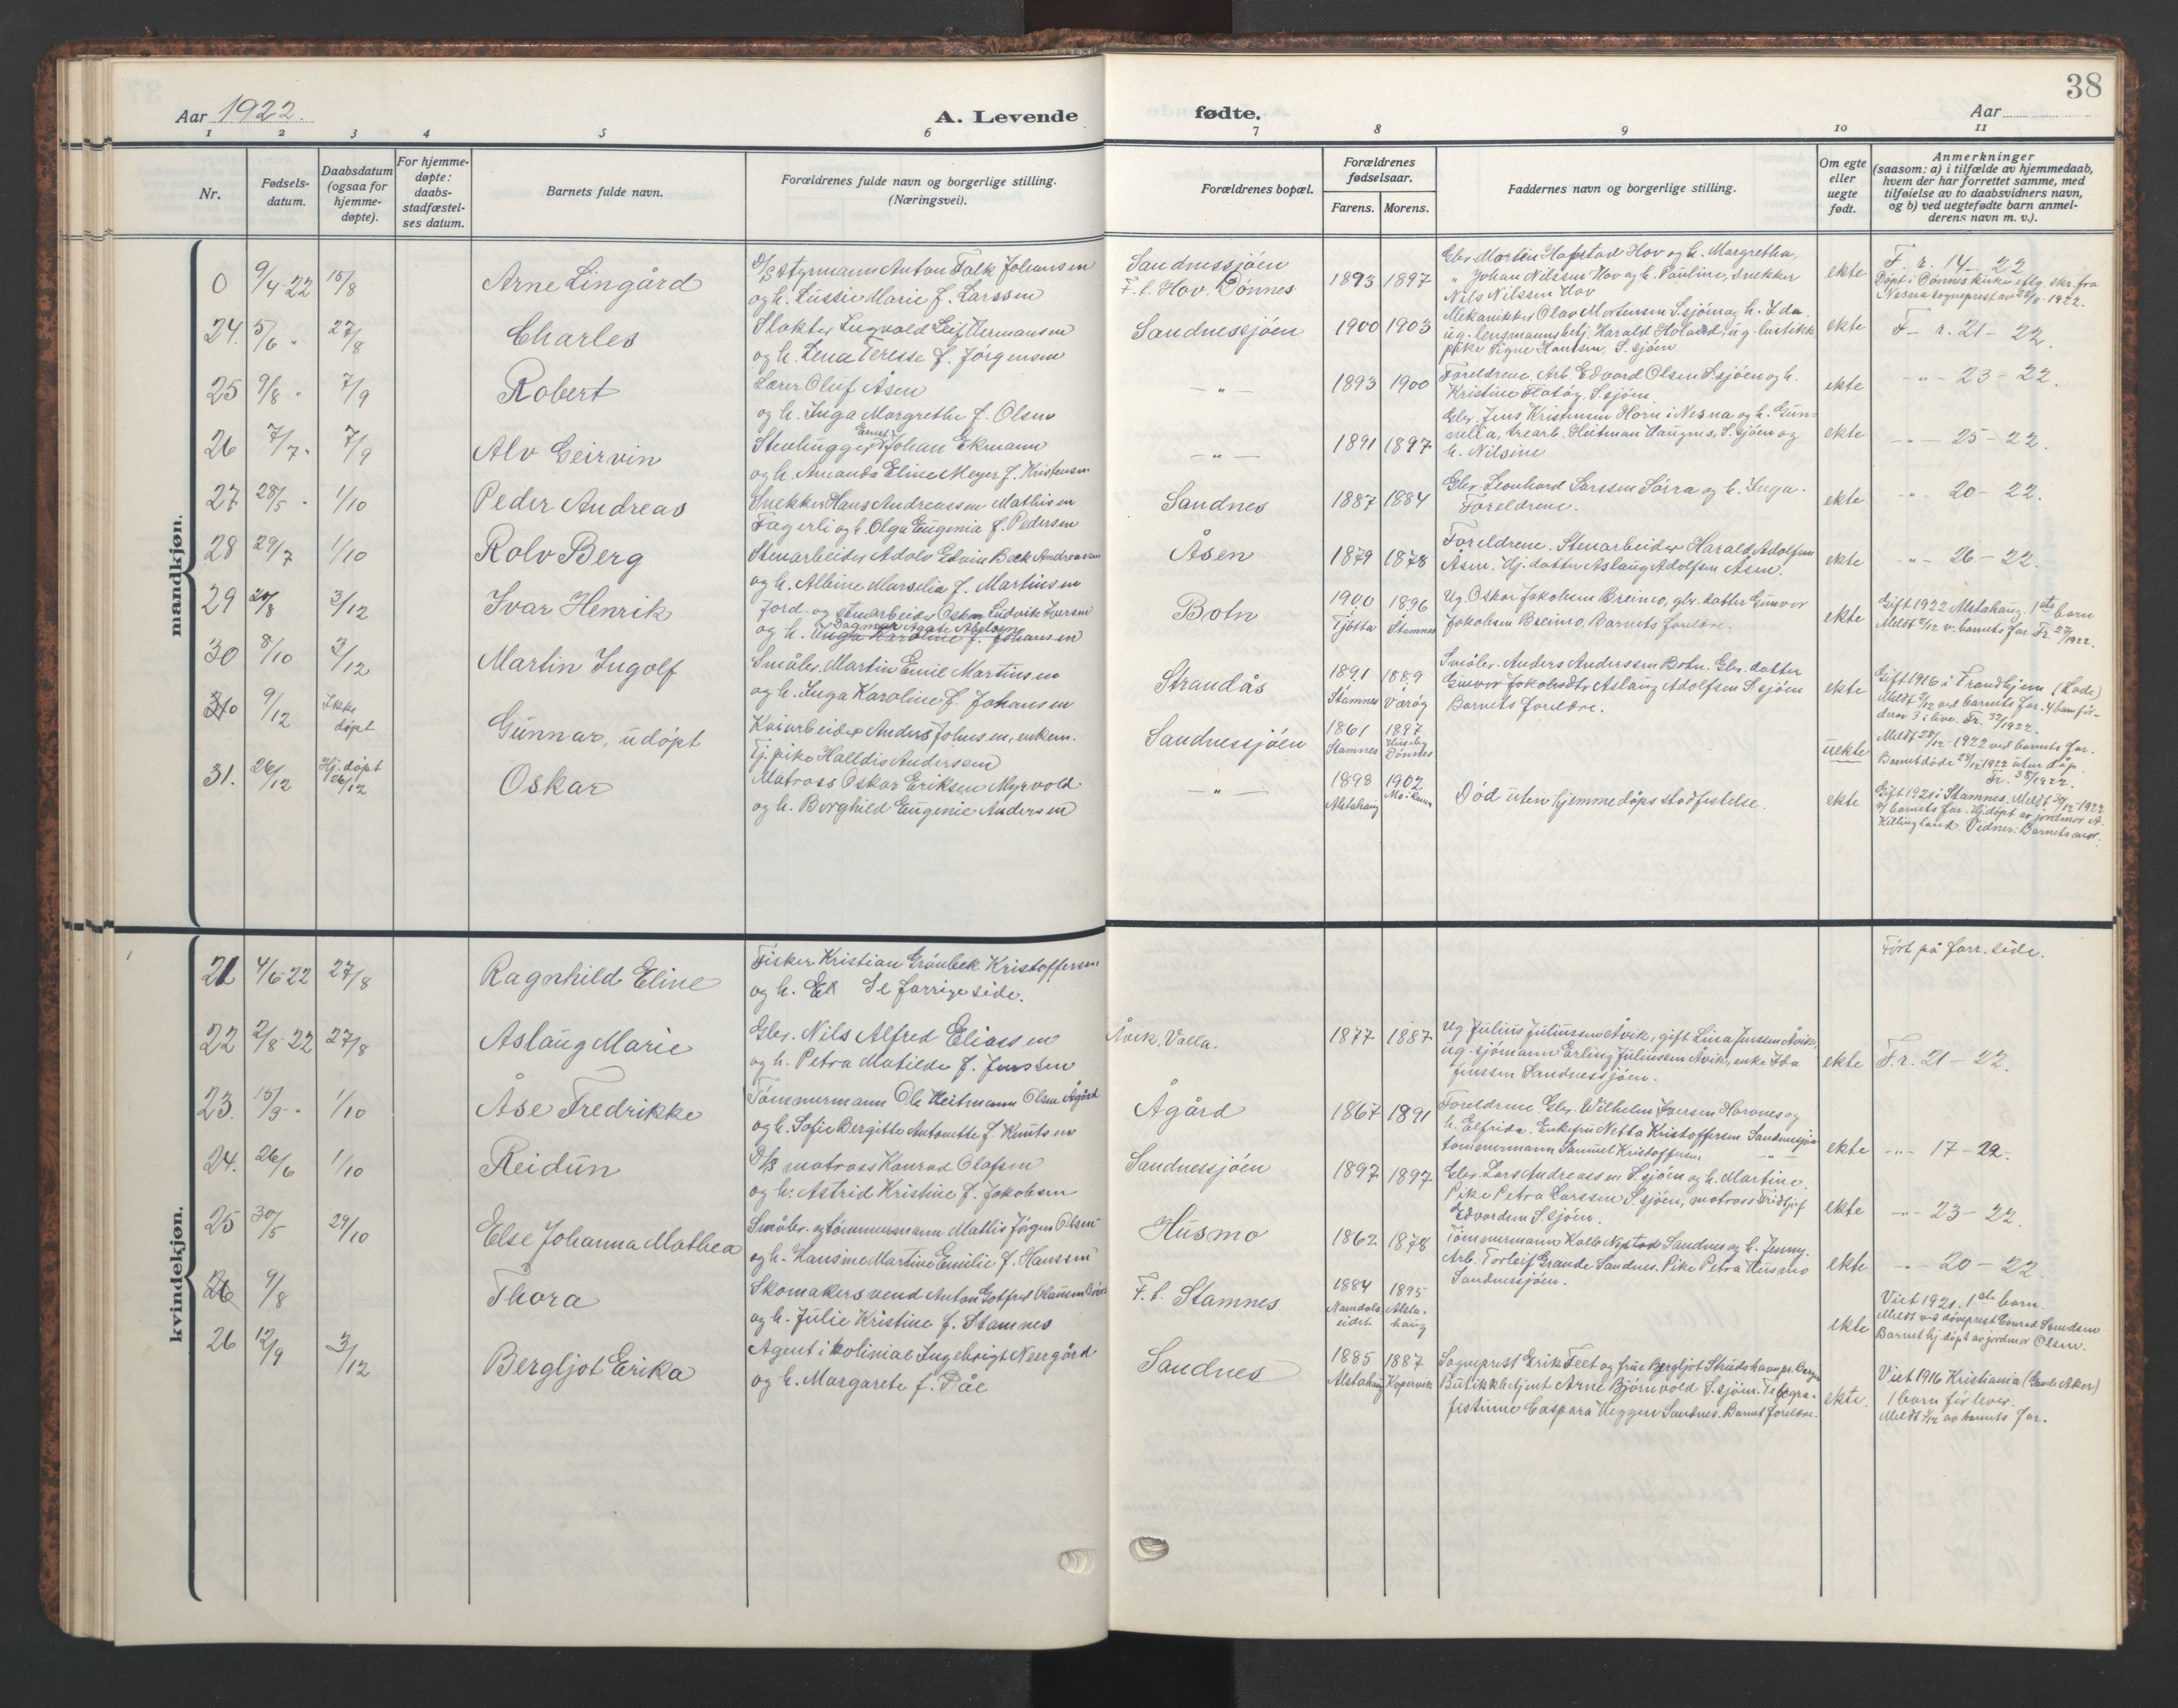 38
Aar 1922.
A. Levende
fødte.
Aar
1 2 3 4 5 6 7 8 9 10 11
Nr.
Fødsels-
datum.
Daabsdatum
(ogsaa for
hjemme-
døpte).
For hjemme-
døpte:
daabs-
stadfæstel-
ses datum.
Barnets fulde navn.
Forældrenes fulde navn og borgerlige stilling.
(Næringsvei).
Forældrenes bopæl.
Forældrenes
fødselsaar.
Farens. Morens.
Faddernes navn og borgerlige stilling.
Om egte
eller
uegte
født.
Anmerkninger
(saasom: a) i tilfælde av hjemmedaab,
hvem der har forrettet samme, med
tilføielse av to daabsvidners navn,
og b) ved uegtefødte barn anmel-
derens navn m. v.).
mandkjøn.
0 9/4-22 15/8 Arne Lingård
D/S styrmann Anton Falk Johansen
og h. Lussie Marie f. Larssen
Sandnessjöen
F. t. Hov, Dönnes
1893 1897
Gbr. Morten Hofstad Hov og h. Margretha,
" Johan Nilsen Hov og h. Pauline, snekker
Nils Nilssen Hov
ekte
F. r. 14 - 22
Döpt i Dönnes kirke iflg. skr. fra
Nesna sogneprest av
24. 5/6 " 27/8 Charles
Slakter Ingvald Leif Hermansen
og h. Lena Terese f. Jörgensen
Sandnessjöen
1900 1903
Mekaniker Olav Mortensen S.sjöen og h. Ida.
ug. lensmannsbetj. Harald ug. butikk
pike Signe Hansen, S.sjöen
ekte
F- r. 21 - 22.
25 9/8 " 7/9 Robert
Lærer Oluf Åsen
og h. Inga Margrethe f. Olsen
- " -
1893 1900
Foreldrene, Arb. Edvard Olsen S.sjöen og h.
Kristine Flatöy, S.sjöen.
ekte
- " - 23 - 22.
26 7/7 " 7/9 Alv Geirvin
Stenhugger Ernst Johan Ekmann
og h. Amanda Eline Meyer f. Kristensen
- " -
1891 1897
Gbr. Jens Kristensen Horn i Nesna og h. Gun-
nilla, trearb. Heitman Haugnes, S.sjöen og
h. Nilsine
ekte
- " - 25 - 22.
27 28/5 " 1/10 Peder Andreas
Snekker Hans Andreassen Mathisen
Fagerli og h. Olga Eugenia f. Pedersen
Sandnes
1887 1884
Gbr. Leonhard Larssen Sörra og h. Inga.
Foreldrene.
ekte
- " - 20 - 22.
28 29/7 1/10 Rolv Berg
Stenarbeider Adolv Edvin Bæk Andreassen
og h. Albine Marselia f. Martinsen
Åsen
1879 1878
Foreldrene. Stenarbeider Harald Adolfsen
Åsen. Hj. datter Aslaug Adolfsen Åsen.
ekte
" - 26 - 22.
29 3/12 Ivar Henrik
Jord- og stenarbeider Oskar Ludvik Iversen
Dagmar Agate Abelsen
og h. Inga Karoline f. Johansen
Botn
1900 1896
Tjötta Stamnes
Ug. Oskar Jakobsen Breimo, gbr. datter Gunvor
Jakobsen Breimo. Barnets foreldre.
ekte
Gift 1922 Alstahaug. 1ste barn
Meldt 2/12 v. barnets far. Fr. 27/1922.
30 8/10 3/12 Martin Ingolf
Småbr. Martin Emil Martinsen
og h. Inga Karoline f. Johansen
Strandås
1891 1889
Stamnes Væröy
Småbr. Anders Anderssen Botn. Gbr. datter
Gunvor Jakobsdtr Aslaug Adolfsen S.sjöen
Barnets foreldre.
ekte
Gift 1916 i Trondhjem (Lade)
Meldt 2/12 ved barnets far. 4 barn för-
derav 3 i live. Fr. 32/1922.
30 9/12 Ikke
döpt
Gunnar, udöpt
Kaiarbeider Anders Johnsen, enkem.
Tj. pike Halldis Andersen
Sandnessjöen
1861 1897
Stamnes Husby
Dönnes
uekte
Meldt 28/12-1922 ved barnets far.
Barnet döde 28/12 1922 uten dåp.
Fr. 38/1922.
31. 26/12 Hj. döpt
26/12
Oskar
Matross Oskar Eriksen Myrvold
og h. Borghild Eugenie Andersen
- " -
1898 1902
Alstahaug Mo i Rana
Död uten hjemmedåps stadfestelse.
ekte
Gift 1921 i Stamnes. Meldt 29/12-1922
av barnets far. Hj. döpt av jordmor A.
Killingland. Vidner: Barnets mor.
kvindekjøn.
21 4/6-22 27/8 Ragnhild Eline
Fisker Kristian Grönbek Kristoffersen
og h. El Se forrige side.
Fört på forr. side.
22 2/8-22 27/8 Aslaug Marie
Gbr. Nils Alfred Eliassen
og h. Petra Matilde f. Jenssen
Åvik, Valla.
1877 1887
Ug. Julius Juliussen Åvik, gift Lina Jenssen Åvik,
ug. sjömann Erling Juliussen Åvik, enke Ida
Jenssen Sandnessjöen.
ekte
F. r. 21 - 22.
23. " 1/10 Åse Fredrikke
Tömmermann Ole Heitmann Olsen Ågård
og h. Sofie Bergitte Antonette f. Knutsen
Ågård
1867 1891
Foreldrene. Gbr. Wilhelm Iversen Havnes og
h. Elfrida. Enkefru Netta Kristoffersen Sandnessjöen
tömmermann Samuel Kristoffersen " -
ekte
- " - 17 - 22.
24. 26/6 1/10 Reidun
D/S matross Konrad Olafsen
og h. Astrid Kristine f. Jakobsen
Sandnessjöen
1897 1897
Gbr. Lars Andreassen S.sjöen og h. Martine.
Pike Petra Larssen S.sjöen, matross Fridtjof
Edvardsen S.sjöen.
ekte
- " - 23 - 22.
25 30/5 29/10 Else Johanna Mathea
Småbr. og tömmermann Mathis Jörgen Olsen
og h. Hansine Martine Emilie f. Hanssen
Husmo
1862 1878
Tömmermann Kalb Nystad Sandnes og h. Jenny.
Arb. Torleif Grande Sandnes. Pike Petra Husmo
Sandnessjöen.
ekte
- " - 20 - 22.
26 9/8 Thora
Skomakersvend Anton Gotfred Olaussen
og h. Julie Kristine f. Stamnes
F. t. Stamnes
1884 1895
Namdals- Alsta-
eidet haug
ekte
Viet 1921. 1ste barn.
Meldt ved döveprest Conrad Svendsen
Barnet hj. döpt av jordmor Olsen.
26 12/9 3/12 Bergljot Erika
Agent i kolonial Ingebrigt Neergård
og h. Margarete f. Påe
Sandnes
1885 1887
Alstahaug Kopervik
Sogneprest Erik Feet og frue Bergljot Strudshavn pr. Bergen
Butikkbetjent Arne Björnvold S.sjöen. Telegra-
fistinne Caspara Heggen Sandnes. Barnets foreldre.
ekte.
Viet 1916 Kristiania (Gamle Aker)
1 barn för lever.
Meldt 1/12 av barnets far.